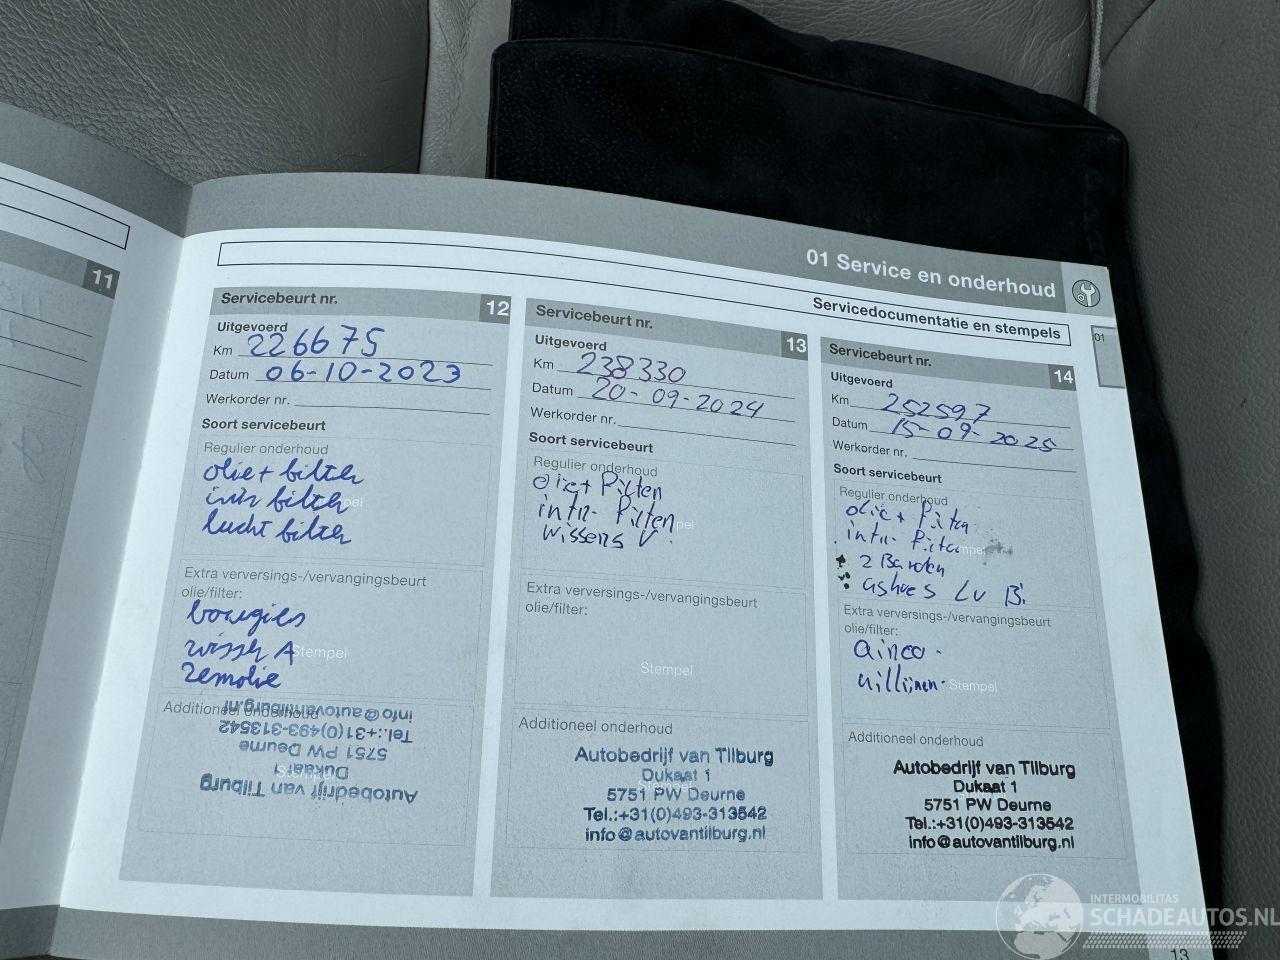 01 Service en onderhoud
Servicedocumentatie en stempels
01
11
Servicebeurt nr. 12
Uitgevoerd
Km 226675
Datum 06-10-2023
Werkorder nr.
Soort servicebeurt
Regulier onderhoud
olie + filter
intr filter
lucht filter
Stempel
Extra verversings-/vervangingsbeurt
olie/filter:
bougies
wisser A
Remolie
Stempel
Additioneel onderhoud
Stempel
Autobedrijf van Tilburg
Dukaat 1
5751 PW Deurne
Tel.:+31(0)493-313542
info@autovantilburg.nl
Servicebeurt nr. 13
Uitgevoerd
Km 238330
Datum 20-09-2024
Werkorder nr.
Soort servicebeurt
Regulier onderhoud
olie + Filter
intr- Filter
wissers V.
Stempel
Extra verversings-/vervangingsbeurt
olie/filter:
Stempel
Additioneel onderhoud
Autobedrijf van Tilburg
Dukaat 1
5751 PW Deurne
Tel.:+31(0)493-313542
info@autovantilburg.nl
Servicebeurt nr. 14
Uitgevoerd
Km 252597
Datum 15-09-2025
Werkorder nr.
Soort servicebeurt
Regulier onderhoud
olie + Filter
intr- Filter
Stempel
2 Banden
ashoes LV B.
Extra verversings-/vervangingsbeurt
olie/filter:
Airco.
uillijnen.
Stempel
Additioneel onderhoud
Autobedrijf van Tilburg
Dukaat 1
5751 PW Deurne
Tel.:+31(0)493-313542
info@autovantilburg.nl
13
INTERMOBILITAS
SCHADEAUTOS.NL